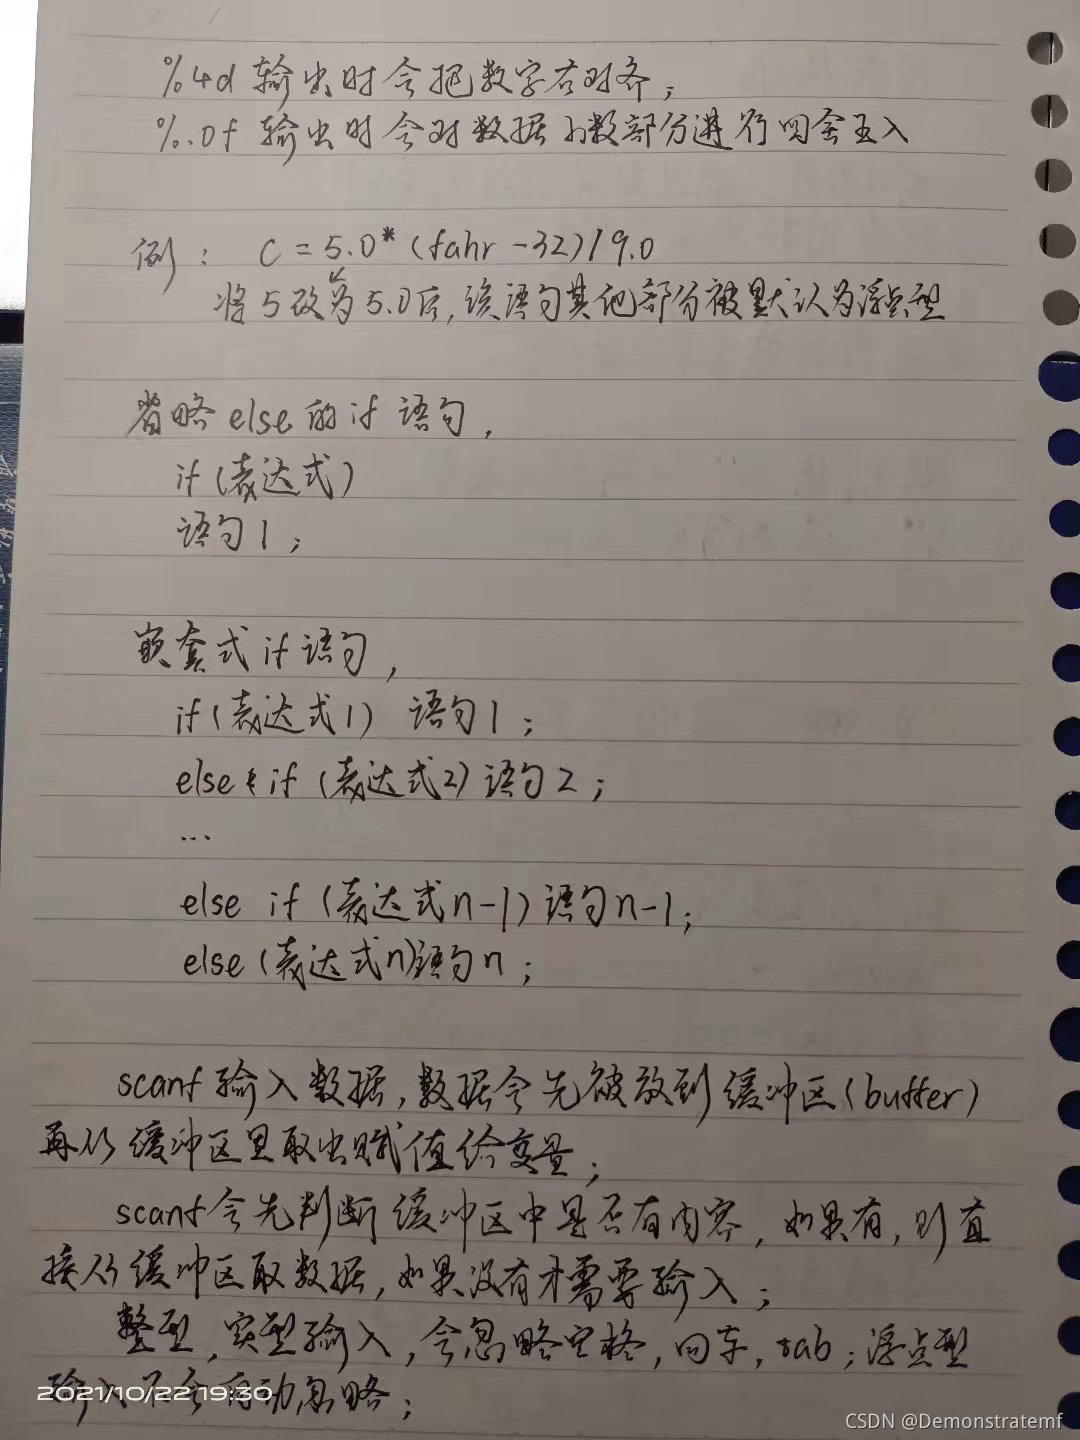 %4d 输出时会把数字右对齐；
%.0f 输出时会对数据小数部分进行四舍五入
例： C = 5.0*(fahr-32)/9.0
将5改为5.0后，该语句其他部分被默认为浮点型
省略else的if语句，
if(表达式)
语句1；
嵌套式if语句，
if(表达式1) 语句1；
else if (表达式2) 语句2；
...
else if (表达式n-1) 语句n-1；
else (表达式n)语句n；
scanf输入数据，数据会先被放到缓冲区(buffer)
再从缓冲区里取出赋值给变量；
scanf会先判断缓冲区中是否有内容，如果有，则直
接从缓冲区取数据，如果没有才需要输入；
整型，实型输入，会忽略空格，回车，tab；浮点型
输入不会自动忽略；
2021/10/22 19:30
CSDN @Demonstratemf